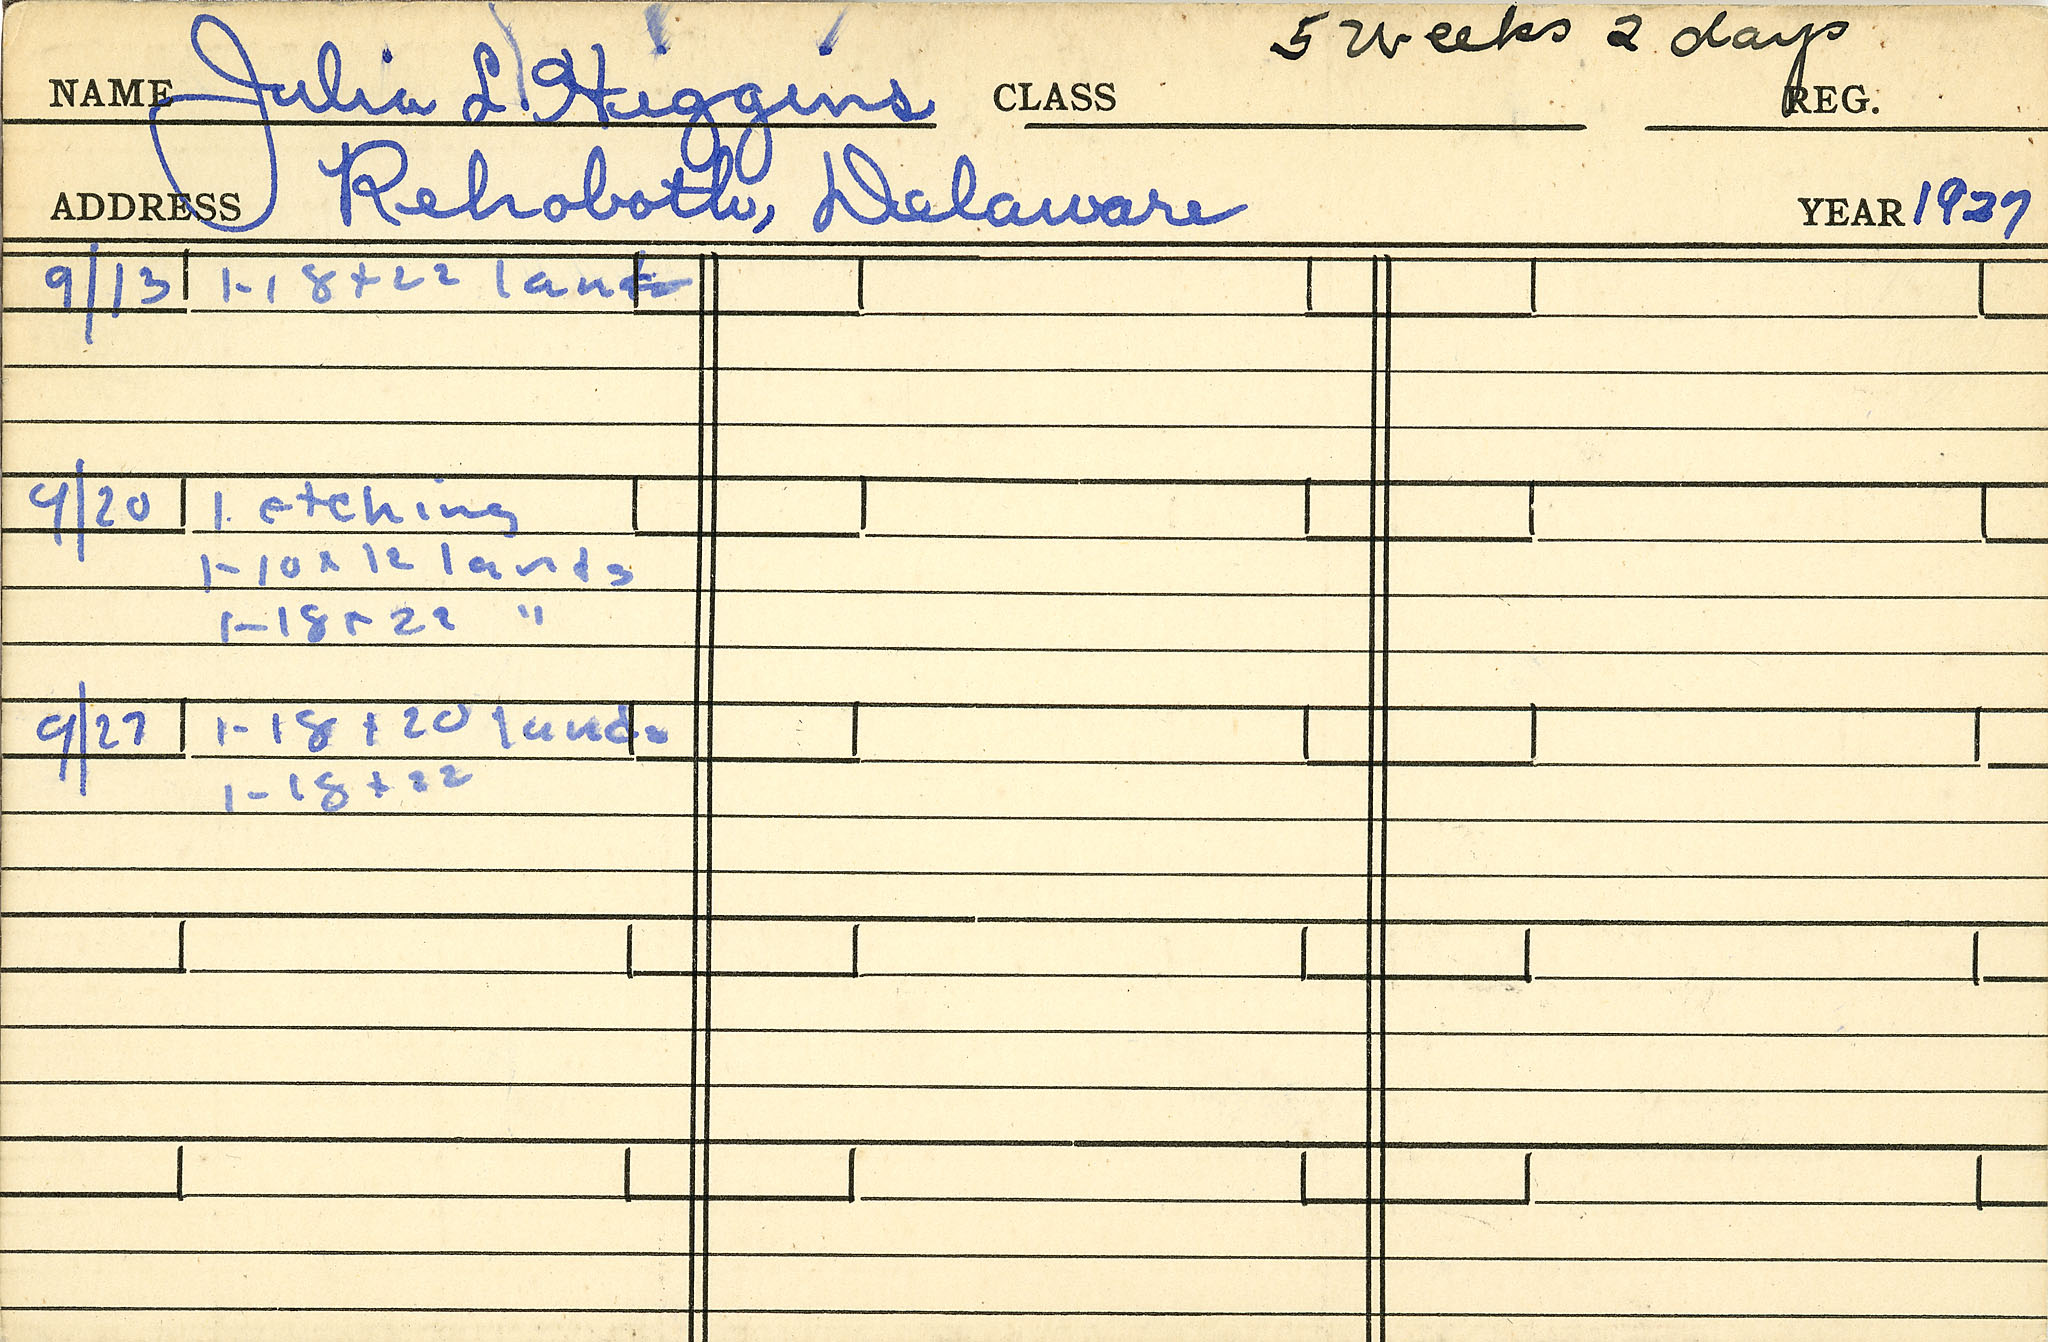 5 Weeks 2 days
NAME Julia L. Higgins CLASS REG.
ADDRESS Rehoboth, Delaware YEAR 1927
9/13 1-18+22 lands
9/20 1. etching
1-10x12 lands
1-18+22 "
9/27 1-18+20 lands
1-18+22